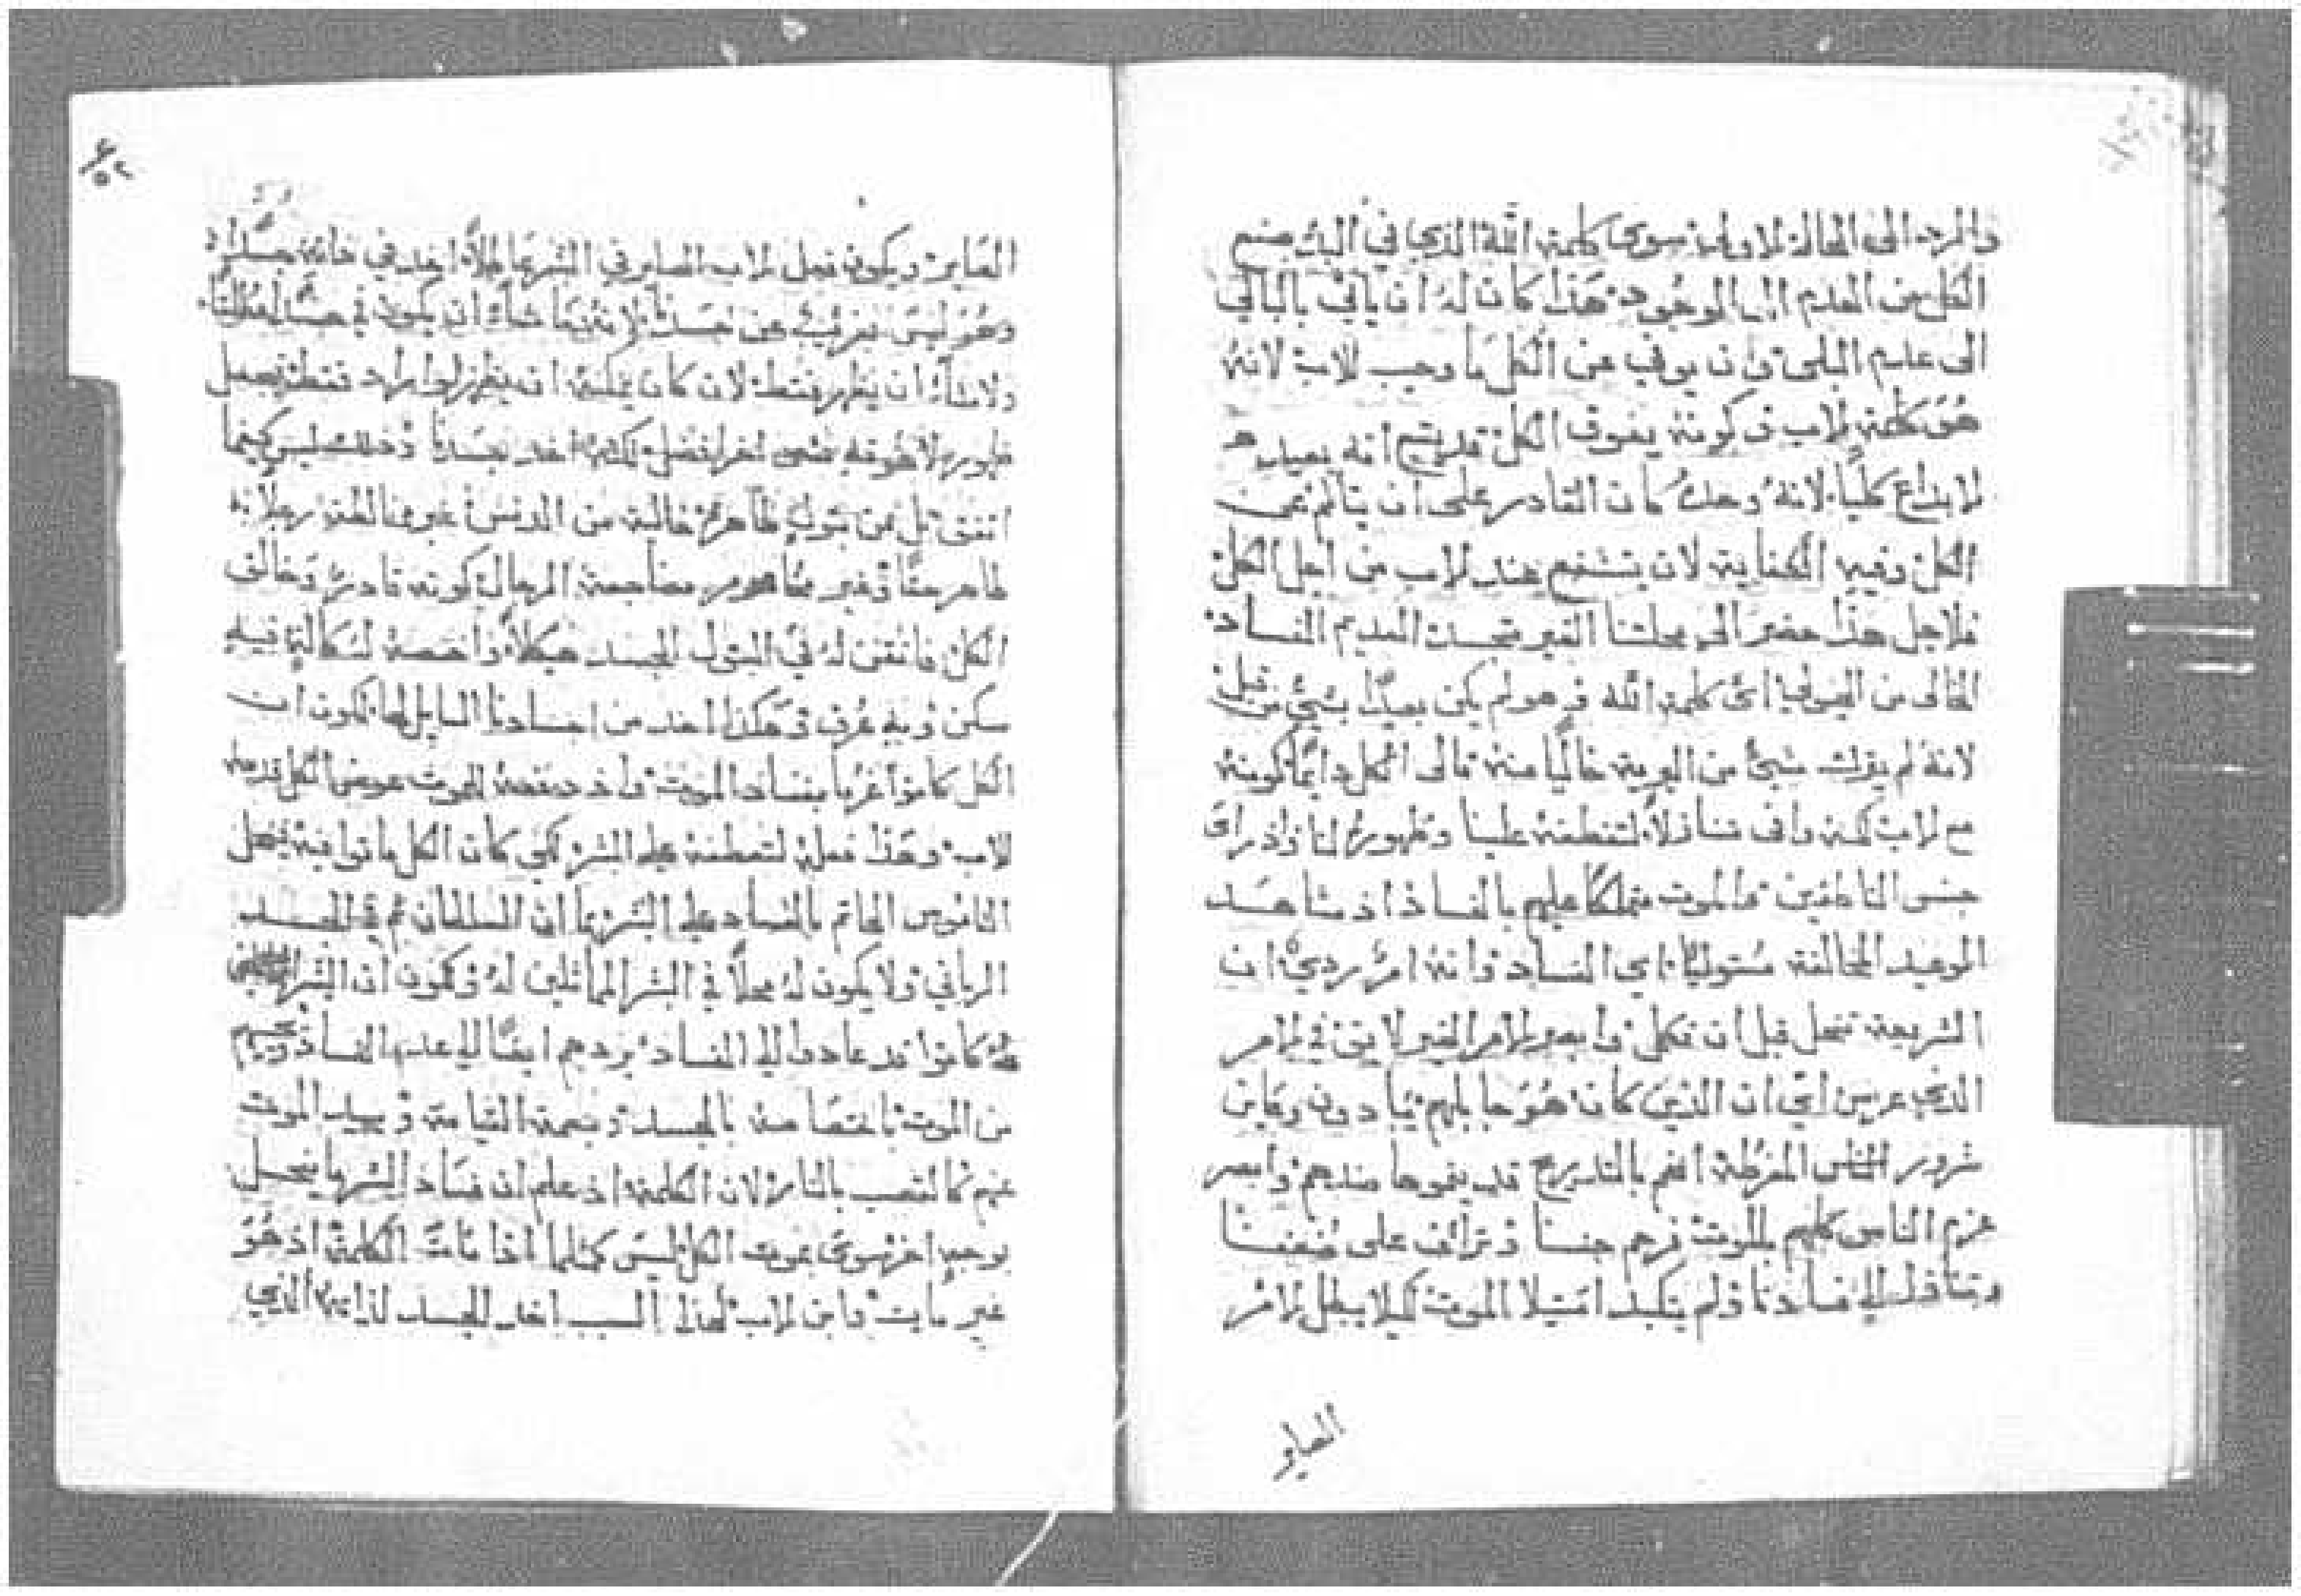 والرد الى الحالة الاولى سوى كلمة الله الذي في البدء صنع
الكل من العدم الى الوجود هذا كان له ان يأتي بالبالي
الى عدم البلى وان يوفي عن الكل ما وجب للاب لانه
هو كلمة الاب وكونه يفوق الكل قد يتبع انه يعيد
الابداع كليًا لانه وحده كان القادر على ان يتألم عن
الكل وفيه الكفاية لان يتشفع عند الاب من اجل الكل
فلاجل هذا حضر الى محلتنا الغير متجسد العديم الفساد
الخالي من الهيولى اي كلمة الله وهو لم يكن بعيدًا بشيء من قبل
لانه لم يترك شيء من البرية خاليًا منه مالى الكل دايمًا كونه
مع الاب لكنه وافى متنازلًا لتعطفه علينا وظهوره لنا واذ رأى
جنس الناطقين والموت متملكًا عليهم بالفساد اذ شاهد
الوعيد المخالفة مستوليًا اي الفساد وانه امر ردي ان
الشريعة تنحل قبل ان تكمل وابصر الامر الغير لايق في الامر
الذي عرض اي ان الذي كان هو جابلهم يبادون وعاين
شرور الناس المفرطة انهم بالتدريج قد ضدهم وابصر
عزم الناس كلهم للموت فرحم جنسنا وترأف على ضعفنا
وتنازل الى فسادنا ولم يتكبد امتيلا الموت لكيلا يبطل الامر
الصاير
الصاير ويكون فعل الاب الصاير في البشر عاطلًا اخذ في ذاته جسدًا
وهو ليس بغريب عن جسدنا لانه ما شاء ان يكون في جسد مطلقًا
ولا شاء ان يظهر فقط لان كان يمكنه ان يظهر لو اراد فقط يجعل
ظهوره الاهوتيه بشي اخر افضل لكنه اخذ جسدنا وذلك ليس كيفما
اتفق بل من بتول طاهرة خالية من الدنس غير مخالطة رجلًا
طاهر حقًا وغير مضاجعة الرجال كونه قادر وخالق
الكل فاتقن له في البتول الجسد هيكلًا واخصه له كآلة فيه
سكن وبه عُرف وهكذا اخذ من اجسادنا المايل لها لكون ان
الكل كانوا بفساد الموت واذ دفعه للموت عوض الكل قدمه
للاب وهذا فعله لتعطفه على البشر لكي كان الكل ماتوا فيه ينحل
الناموس الحاتم بالفساد على البشر بما ان السلطان تم في الجسد
الرباني ولا يكون له محلًا في البشر المماثلين له ولكون ان البشر
كانوا قد عادوا الى الفساد يردهم ايضًا الى عدم الفساد ويحييهم
من الموت باختصاصه بالجسد ونعمة القيامة ويبيد الموت
عنهم كالقصب بالنار لان الكلمة اذ علم ان فساد البشر ما ينحل
بوجهٍ اخر سوى بموت الكل ليس كمثلما اذا مات الكلمة اذ هو
غير مايت وابن الاب لهذا السبب اخذ الجسد لذاته الذي